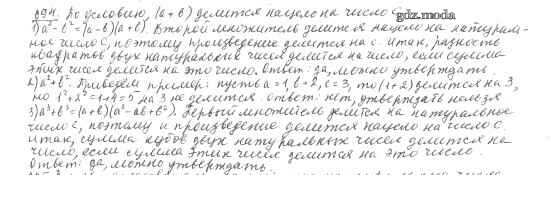 894. По условию, (a + b) делится нацело на число C.
gdz.moda
1) a² - b² = (a-b)(a+b). Второй множитель делится нацело на натураль-
ное число С, поэтому произведение делится на с. Итак, разность
квадратов двух натуральных чисел делится на число, если сумма
этих чисел делится на это число. Ответ: да, можно утверждать.
2) a² + b². Приведем пример: пусть a = 1, b = 2, c = 3, то (1+2) делится на 3,
но 1² + 2² = 1 + 4 = 5 на 3 не делится. Ответ: нет, утверждать нельзя
3) a³ + b³ = (a+b)(a² - ab + b²). Первый множитель делится на натуральное
число с, поэтому и произведение делится нацело на число с.
Итак, сумма кубов двух натуральных чисел делится на
число, если сумма этих чисел делится на это число.
Ответ: да, можно утверждать.